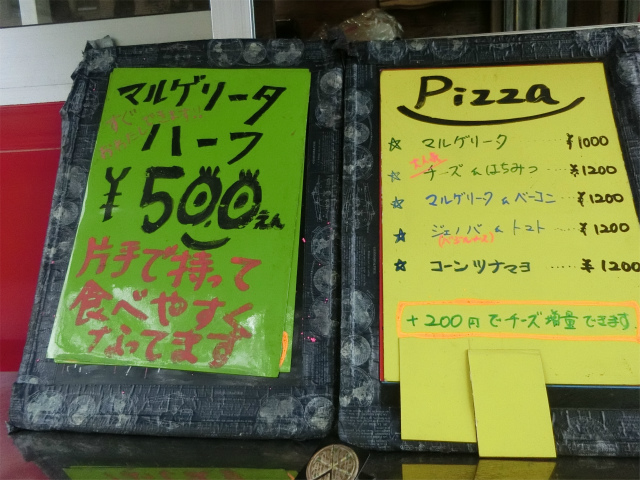 マルゲリータ
ハーフ
¥500えん
片手で持って
食べやすく
なってます
Pizza
☆ マルゲリータ ¥1000
大人気
☆ チーズ&はちみつ ¥1200
☆ マルゲリータ&ベーコン ¥1200
☆ ジェノバ&トマト ¥1200
☆ コーンツナマヨ ¥1200
+200円でチーズ増量できます